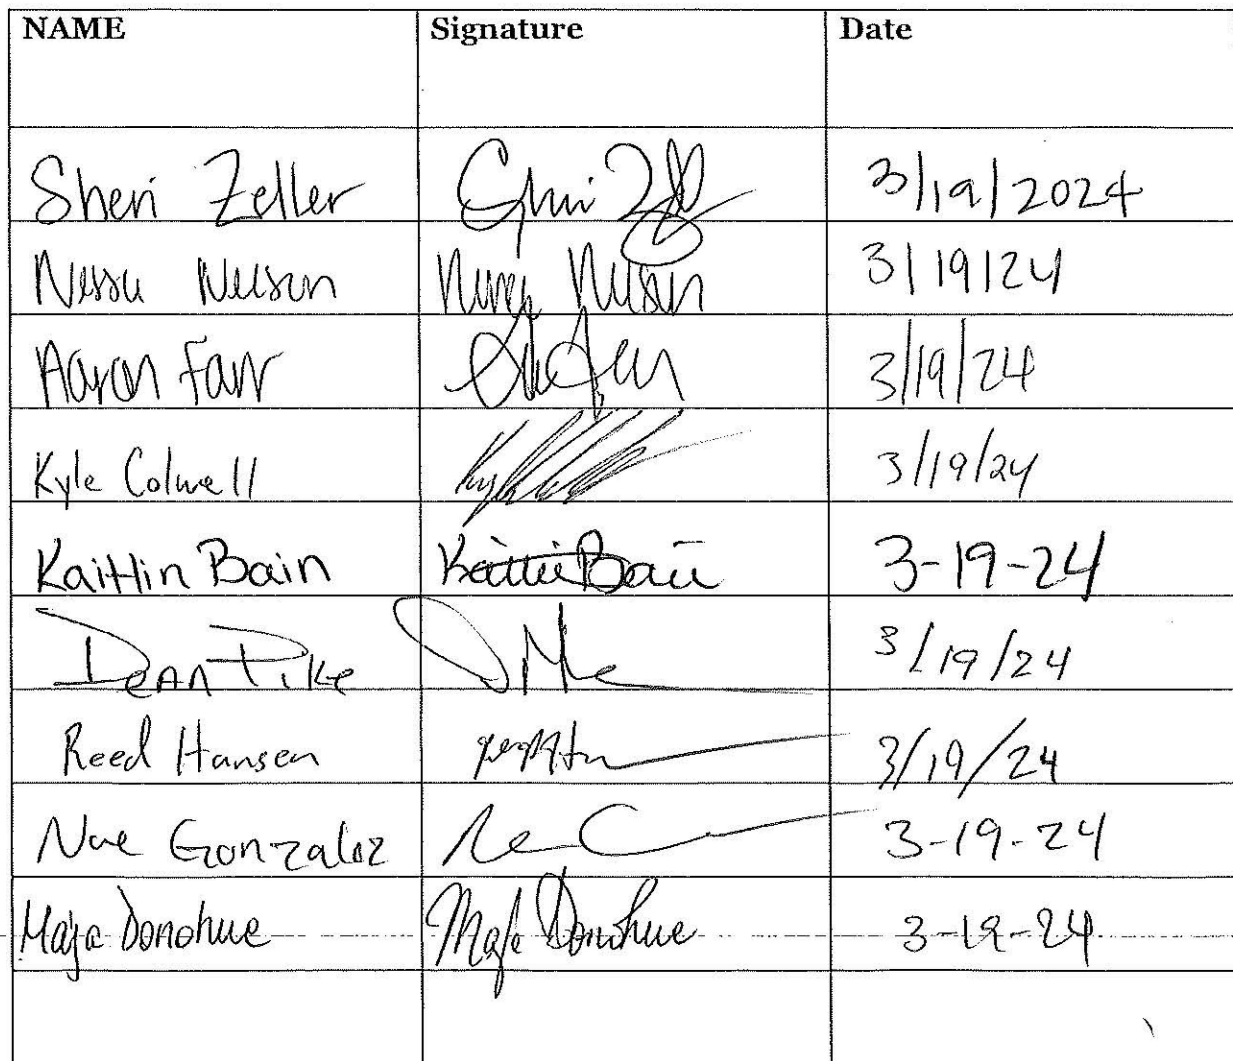 NAME Signature Date
Sheri Zeller 3/19/2024
Nessa Nelson 3/19/24
Aaron Farr 3/19/24
Kyle Colwell 3/19/24
Kaitlin Bain Kaitlin Bain 3-19-24
Dean Pike 3/19/24
Reed Hansen 3/19/24
Noe Gonzalez 3-19-24
Maja Donohue Maja Donohue 3-19-24